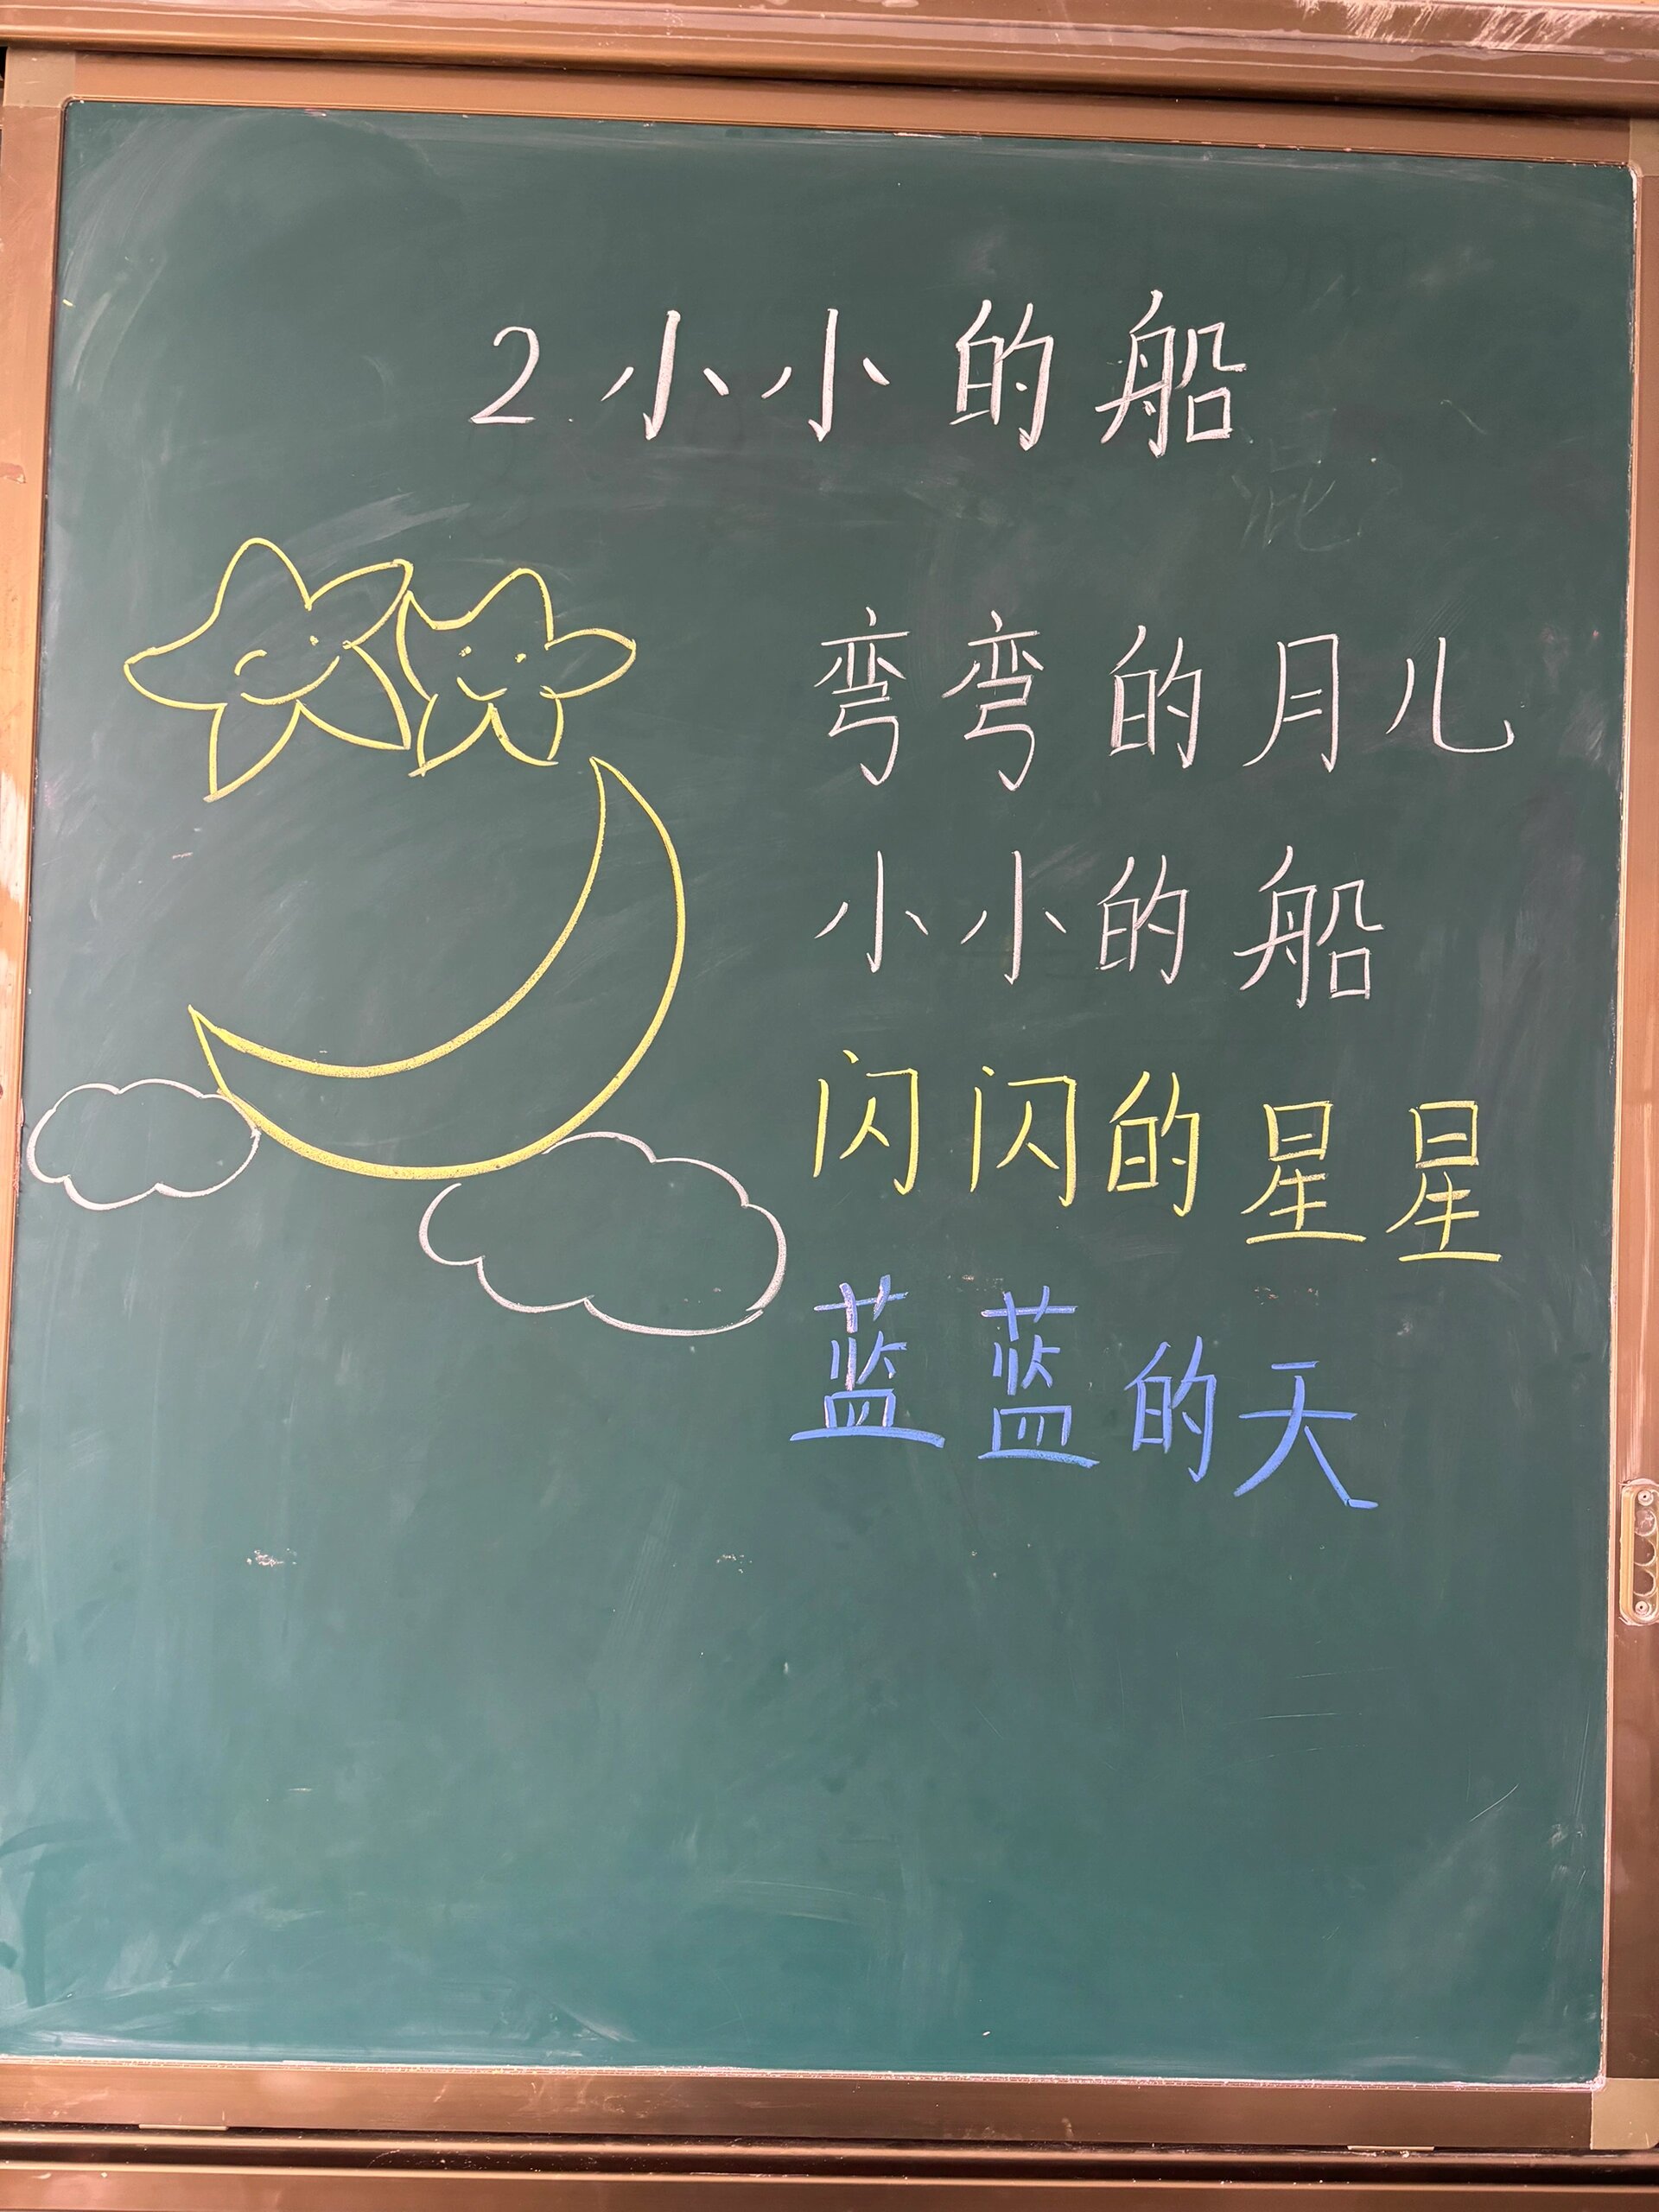 2 小小的船
弯弯的月儿
小小的船
闪闪的星星
蓝蓝的天